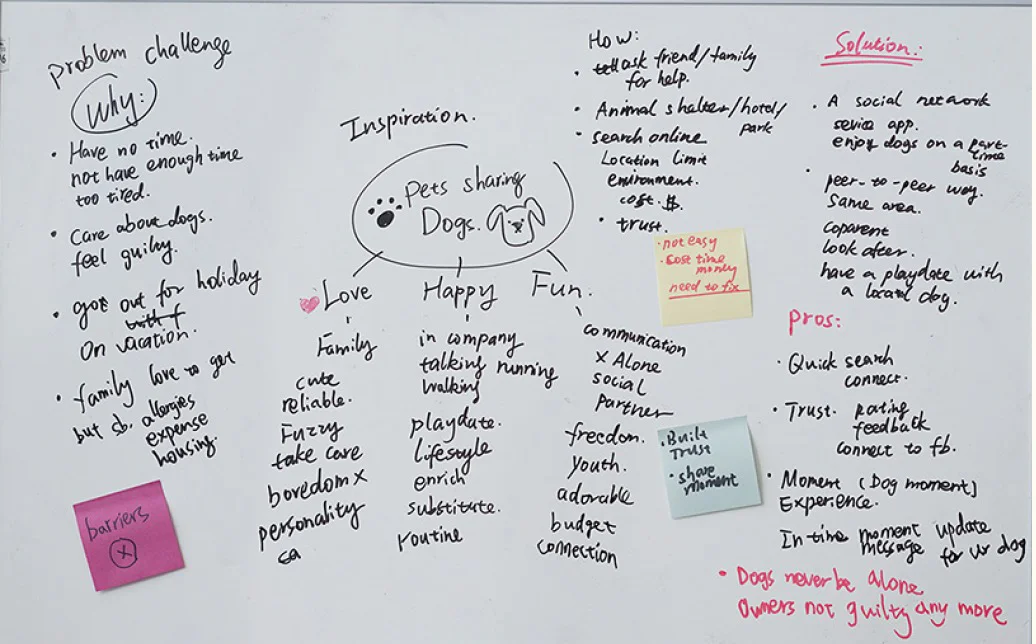 Problem challenge
Why:
• Have no time.
not have enough time
too tired.
• Care about dogs.
feel guilty.
• got out for holiday
with f
On vacation.
• family love to get
but sb. allergies
expense
housing.
barriers
X
Inspiration.
Pets sharing
Dogs.
Love
Family
cute
reliable.
Fuzzy
take care
boredom x
personality
ca
Happy
in company
talking running
walking
playdate.
lifestyle
enrich
substitute.
routine
Fun.
communication
x Alone
social
partner
freedom.
youth.
adorable
budget
connection
How:
• tell ask friend/family
for help.
• Animal shelter/hotel/
park
• search online
Location limit
environment.
cost. $.
• trust.
• not easy
• cost time
money
need to fix
• Built
Trust
• share
moment
Solution:
• A social network
sevice app.
enjoy dogs on a part-
time
basis
• peer-to-peer way.
Same area.
coparent
look after.
have a playdate with
a local dog.
pros:
• Quick search
connect.
• Trust. rating
feedback
connect to fb.
• Moment (Dog moment)
Experience.
In-time moment update
message for ur dog
• Dogs never be alone
Owners not guilty any more